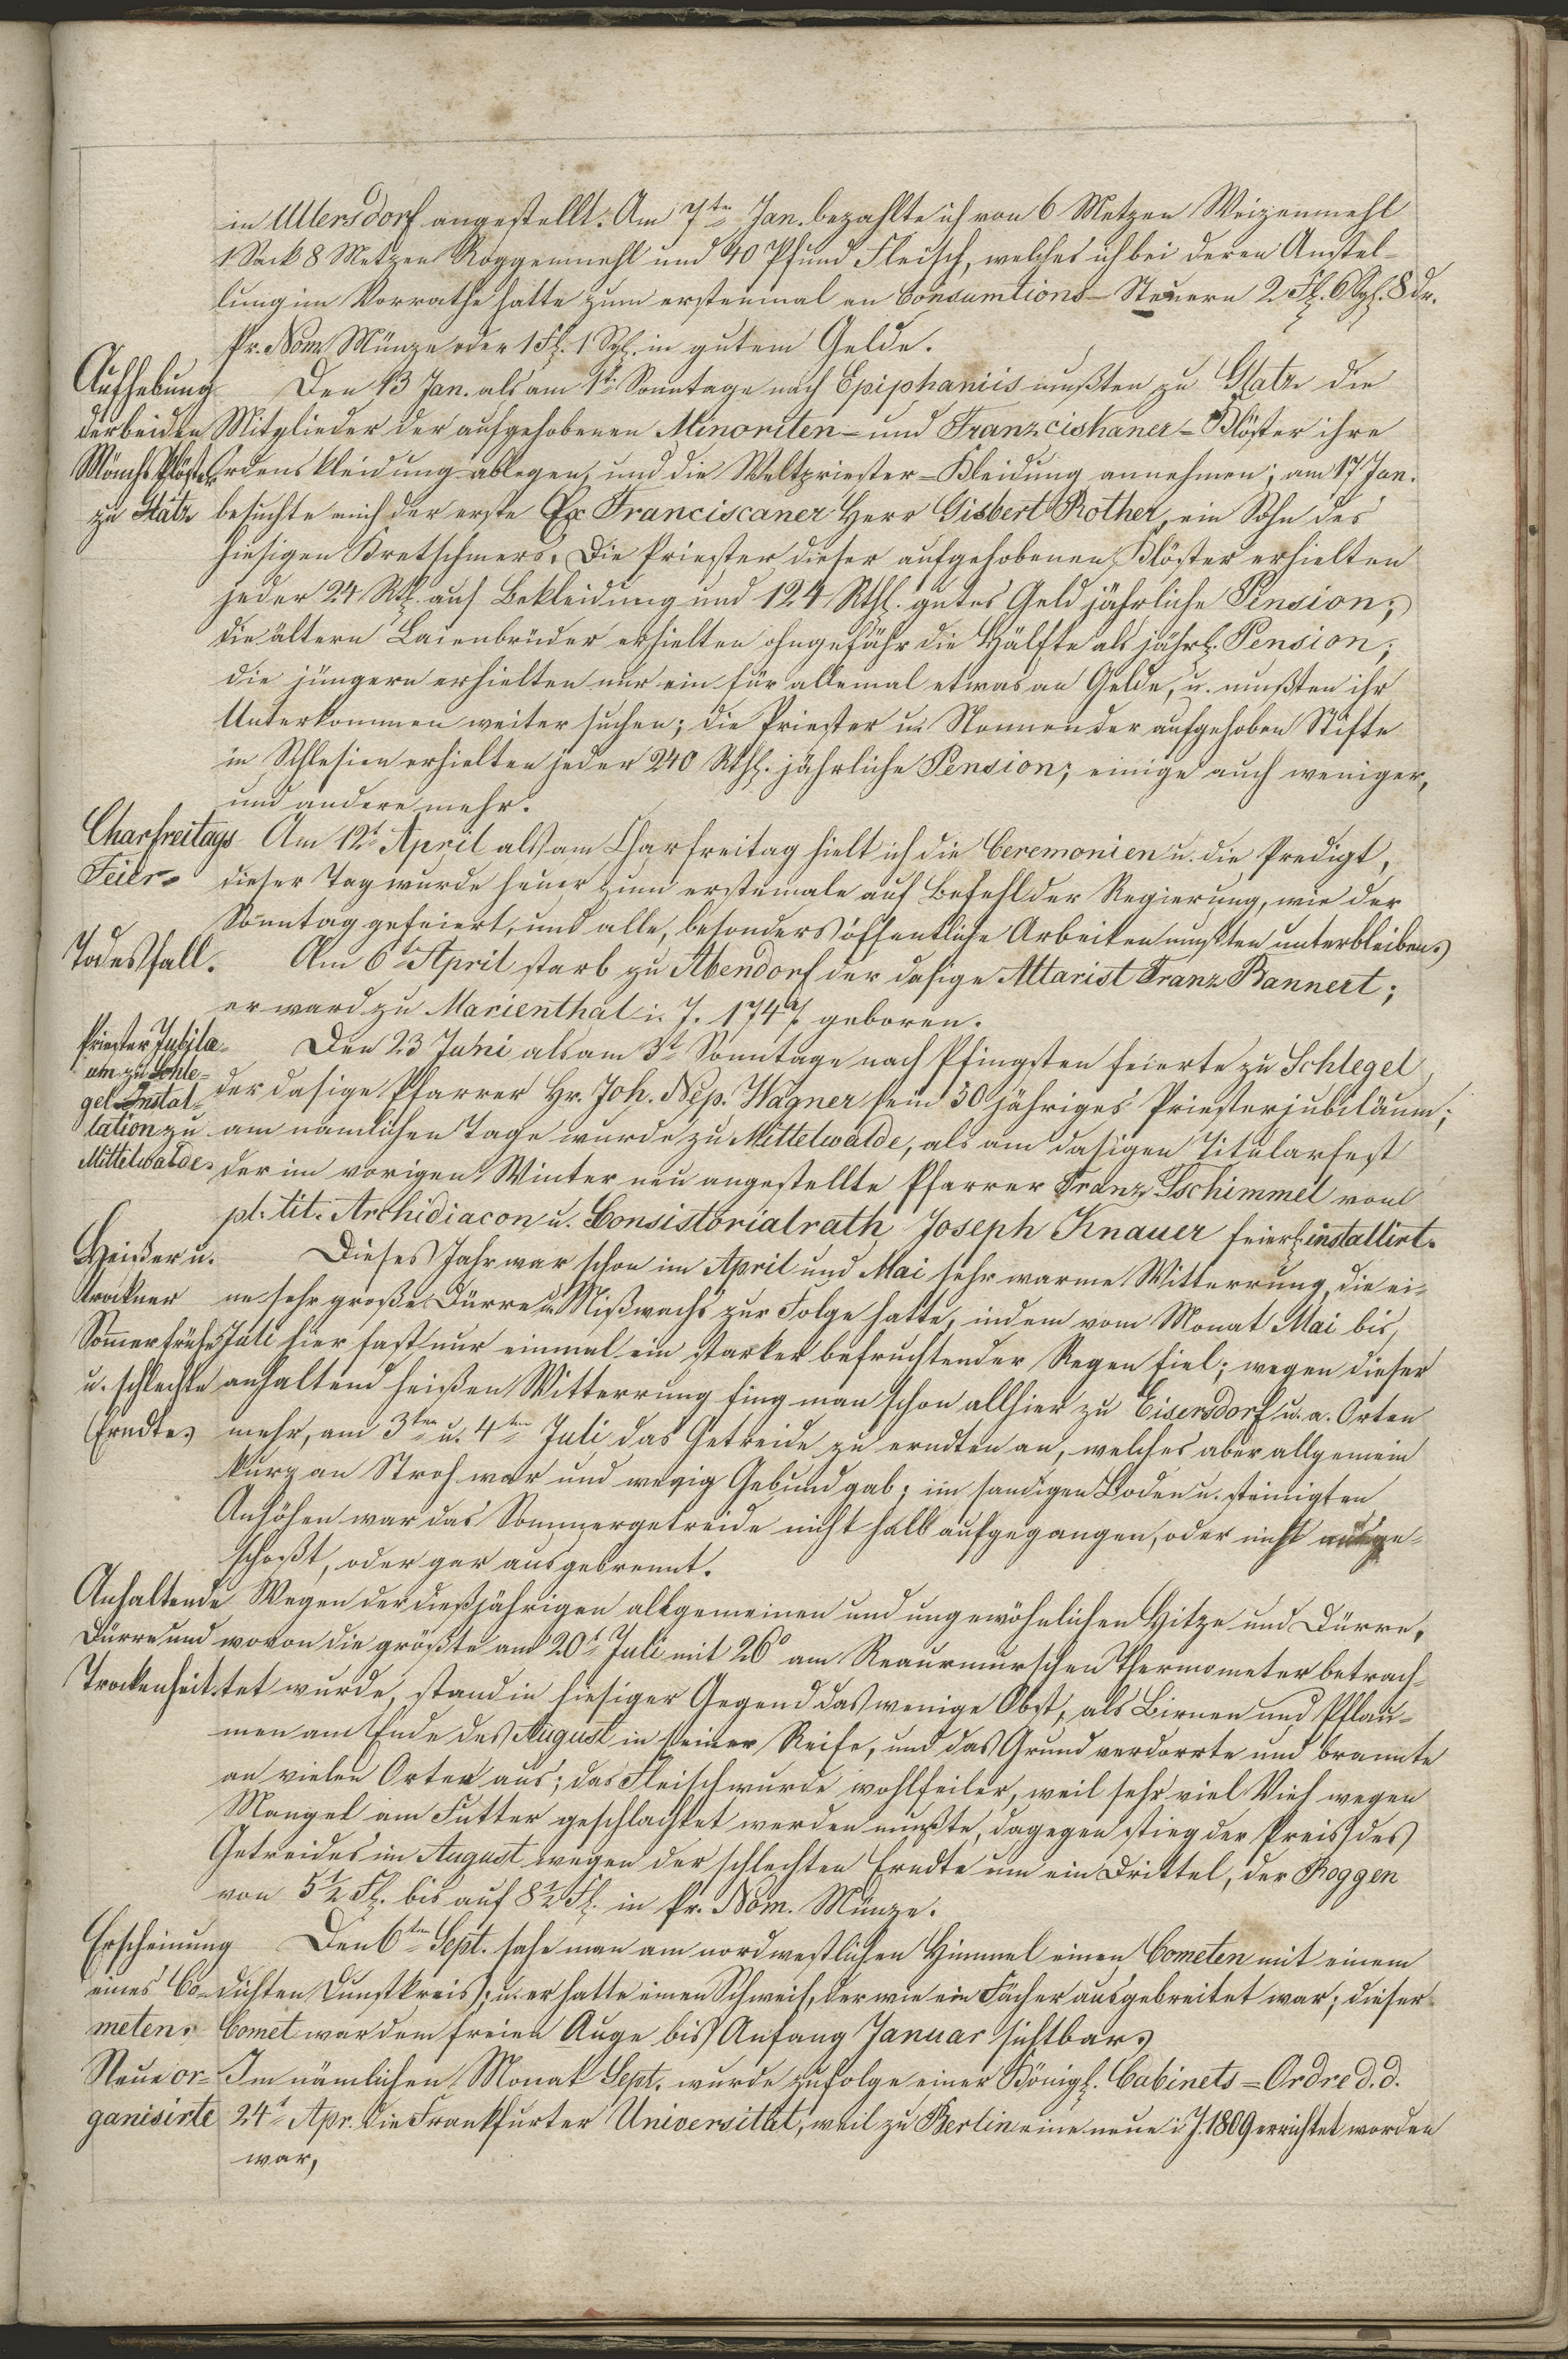 in Ullersdorf angestellt. Am 7ten Jan. bezahlte ich von 6 Metzen Weizenmehl
1 Sack 8 Metzen Roggenmehl und 40 Pfund Fleisch, welches ich bei deren Anstel-
lung im Vorrathe hatte zum erstenmal an Consumtions-Steuern 2 Fl. 6 Sgl. 8 dr.
Pr. Nom. Münze oder 1 Fl. 1 Sgl. in gutem Gelde.
Aufhebung
der beiden
Mönchsklöster
zu Glatz
Den 13 Jan. als am 1t Sonntage nach Epiphaniis mußten zu Glatz die
Mitglieder der aufgehobenen Minoriten- und Franzciskaner-Klöster ihre
Ordenskleidung ablegen, und die Weltpriester-Kleidung annehmen; am 17 Jan.
besuchte mich der erste Ex Franciscaner Herr Gisbert Rother, ein Sohn des
hiesigen Kretschmers. Die Priester dieser aufgehobenen Klöster erhielten
jeder 24 Rthl. auf Bekleidung und 124 Rthl. gutes Geld jährliche Pension;
die ältern Laienbrüder erhielten ohngefähr die Hälfte als jährl. Pension;
die jüngern erhielten nur ein für allemal etwas an Gelde, u. mußten ihr
Unterkommen weiter suchen; die Priester u. Nonnen der aufgehoben Stifte
in Schlesien erhielten jeder 240 Rthl. jährliche Pension; einige auch weniger,
und andere mehr.
Charfreitags
Feier.
Am 12t April als am Charfreitag hielt ich die Ceremonien u. die Predigt,
dieser Tag wurde heuer zum erstemale auf Befehl der Regierung, wie der
Sonntag gefeiert, und alle, besonders öffentliche Arbeiten mußten unterbleiben.
Todesfall.
Am 6t April starb zu Abendorf der dasige Altarist Franz Bannert;
er ward zu Marienthal i. J. 174 geboren.
Priester Jubilæ-
um zu Schle-
gel Instal-
lation zu
Mittelwalde.
Den 23 Juni als am 3t Sonntage nach Pfingsten feierte zu Schlegel
der dasige Pfarrer Hr. Joh. Nep. Wagner sein 30 jähriges Priesterjubiläum;
am nämlichen Tage wurde zu Mittelwalde, als am dasigen Titularfest
der im vorigen Winter neu angestellte Pfarrer Franz Tschimmel vom
pl. tit. Archidiacon u. Consistorialrath Joseph Knauer feierl. installirt.
Heißer u.
trockner
Sommer frühe
u. schlechte
Erndte.
Dieses Jahr war schon im April und Mai sehr warme Witterrung, die ei-
ne sehr große Dürre u. Mißwachs zur Folge hatte, indem vom Monat Mai bis
Juli hier fast nur einmal ein starker befruchtender Regen fiel; wegen dieser
anhaltend heißen Witterrung fing man schon allhier zu Eisersdorf u. a. Orten
mehr, am 3ten u. 4ten Juli das Getreide zu erndten an, welches aber allgemein
kurz an Stroh war und wenig Gebund gab; im sandigen Boden u. steinigten
Anhöhen war das Sommergetreide nicht halb aufgegangen, oder nicht ausge-
schoßt, oder gar ausgebrennt.
Anhaltende
Dürre und
Trockenheit.
Wegen der dießjährigen allgemeinen und ungewöhnlichen Hitze und Dürre,
wovon die größte am 20t Juli mit 26° am Reaurmurschen Thermometer betrach-
tet wurde, stand in hiesiger Gegend das wenige Obst, als Birnen und Pflau-
men am Ende des August in seiner Reife, und das Grund verdorrte und brannte
an vielen Orten aus; das Fleisch wurde wohlfeiler, weil sehr viel Vieh wegen
Mangel am Futter geschlachtet werden mußte, dagegen stieg der Preis des
Getreides im August wegen der schlechten Erndte um ein Drittel, der Roggen
von 5½ Fl. bis auf 8½ Fl. in Pr. Nom. Münze.
Erscheinung
eines Co-
meten.
Den 6ten Sept. sahe man am nordwestlichen Himmel einen Cometen mit einem
dichten Dunstkreis; u. er hatte einen Schweif, der wie ein Fächer ausgebreitet war; dieser
Comet war dem freien Auge bis Anfang Januar sichtbar.
Neue or-
ganisirte
Im nämlichen Monat Sept. wurde zufolge einer Königl. Cabinets-Ordre d. d.
24t Apr. die Frankfurter Universität, weil zu Berlin eine neue i. J. 1809 errichtet worden
war,